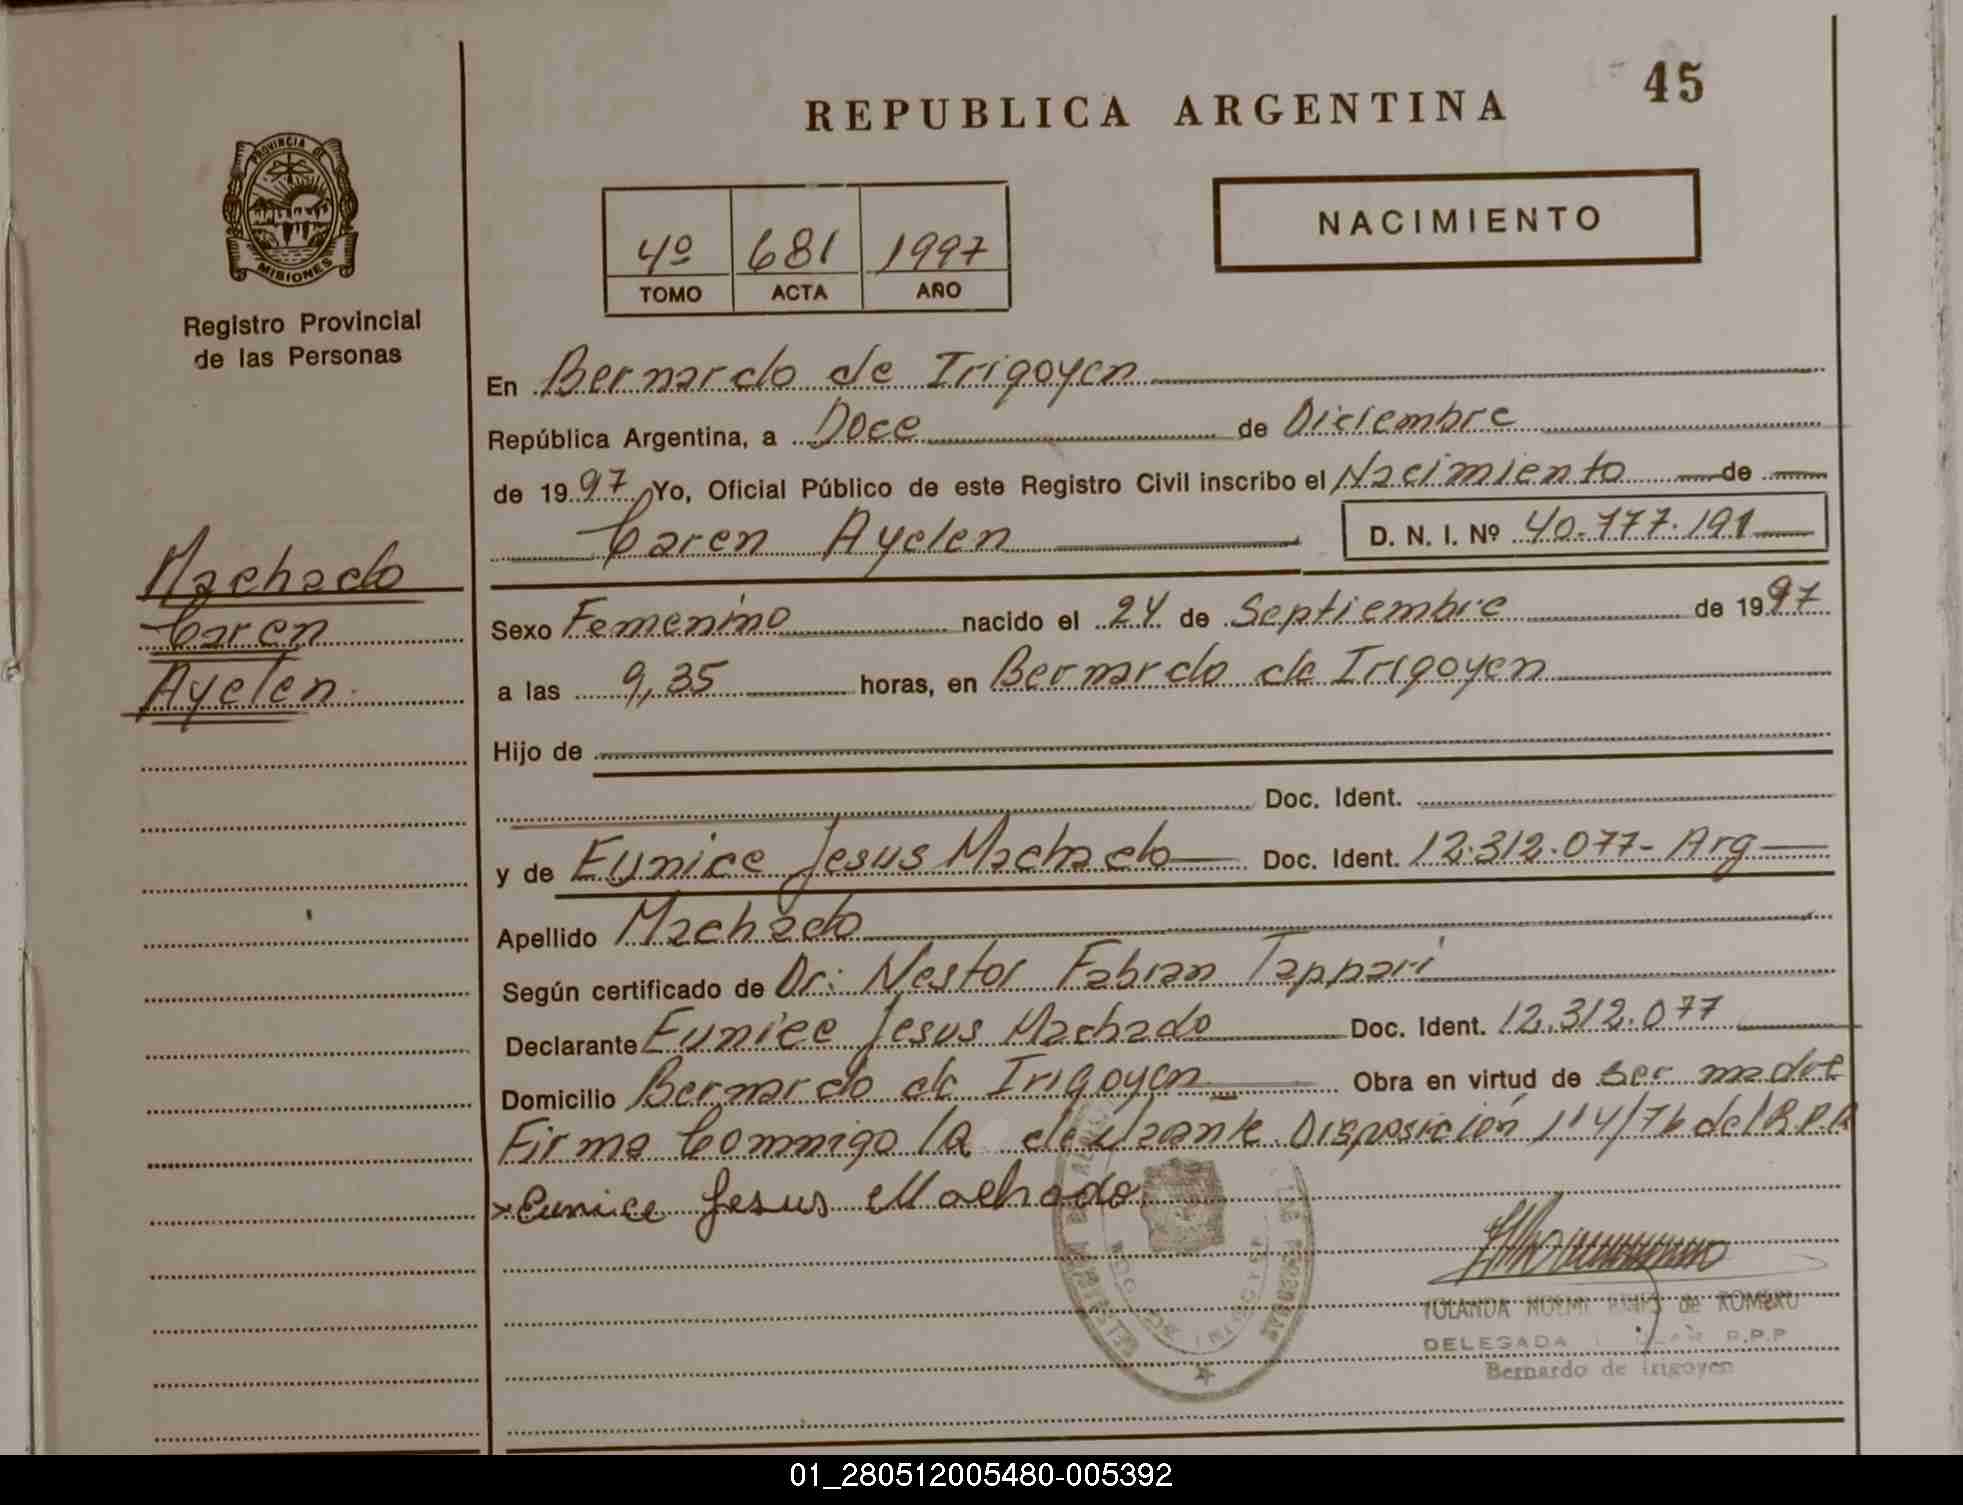 45
REPUBLICA ARGENTINA
PROVINCIA DE
MISIONES
Registro Provincial
de las Personas
4º 681 1997
TOMO ACTA AÑO
NACIMIENTO
En Bernardo de Irigoyen
República Argentina, a Doce de Diciembre
de 1997 Yo, Oficial Público de este Registro Civil inscribo el Nacimiento de
Caren Ayelen D. N. I. Nº 40.777.191
Machado
Caren
Ayelen
Sexo Femenino nacido el 24 de Septiembre de 1997
a las 9,35 horas, en Bernardo de Irigoyen
Hijo de
Doc. Ident.
y de Eunice Jesus Machado Doc. Ident. 12.312.077- Arg
Apellido Machado
Según certificado de Dr: Nestor Fabian Tappari
Declarante Eunice Jesus Machado Doc. Ident. 12.312.077
Domicilio Bernardo de Irigoyen Obra en virtud de ser madre
Firma Conmigo la declarante Disposición 114/76 del R.P.P.
x Eunice Jesus Machado
YOLANDA NOEMI de ROMERO
DELEGADA R.P.P
Bernardo de Irigoyen
01_280512005480-005392